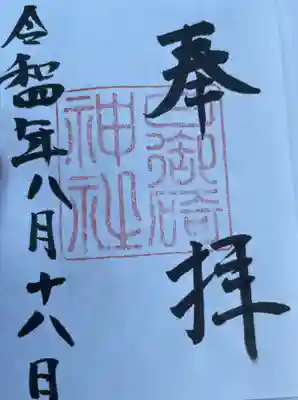 奉拝
日御碕
神社
令和四年八月十八日